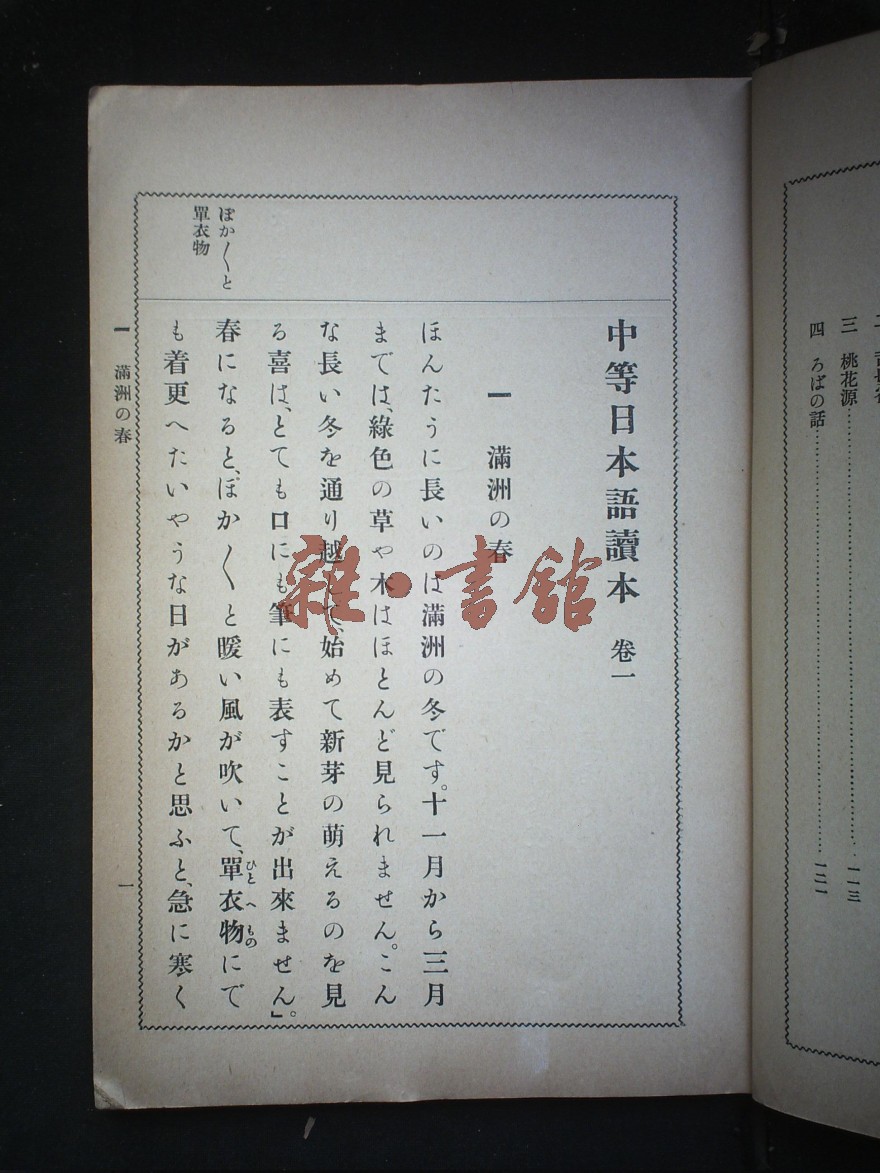 三 桃花源……………………一一三
四 ろばの話……………………一二一
中等日本語讀本 卷一
一 滿洲の春
ほんたうに長いのは滿洲の冬です。十一月から三月
までは、綠色の草や木はほとんど見られません。こん
な長い冬を通り越して、始めて新芽の萌えるのを見
る喜は、とても口にも筆にも表すことが出來ません。」
春になると、ぽか〱と暖い風が吹いて、單衣物にで
ひとへもの
も着更へたいやうな日があるかと思ふと、急に寒く
ぽか〱と
單衣物
一 滿洲の春
一
雜·書館